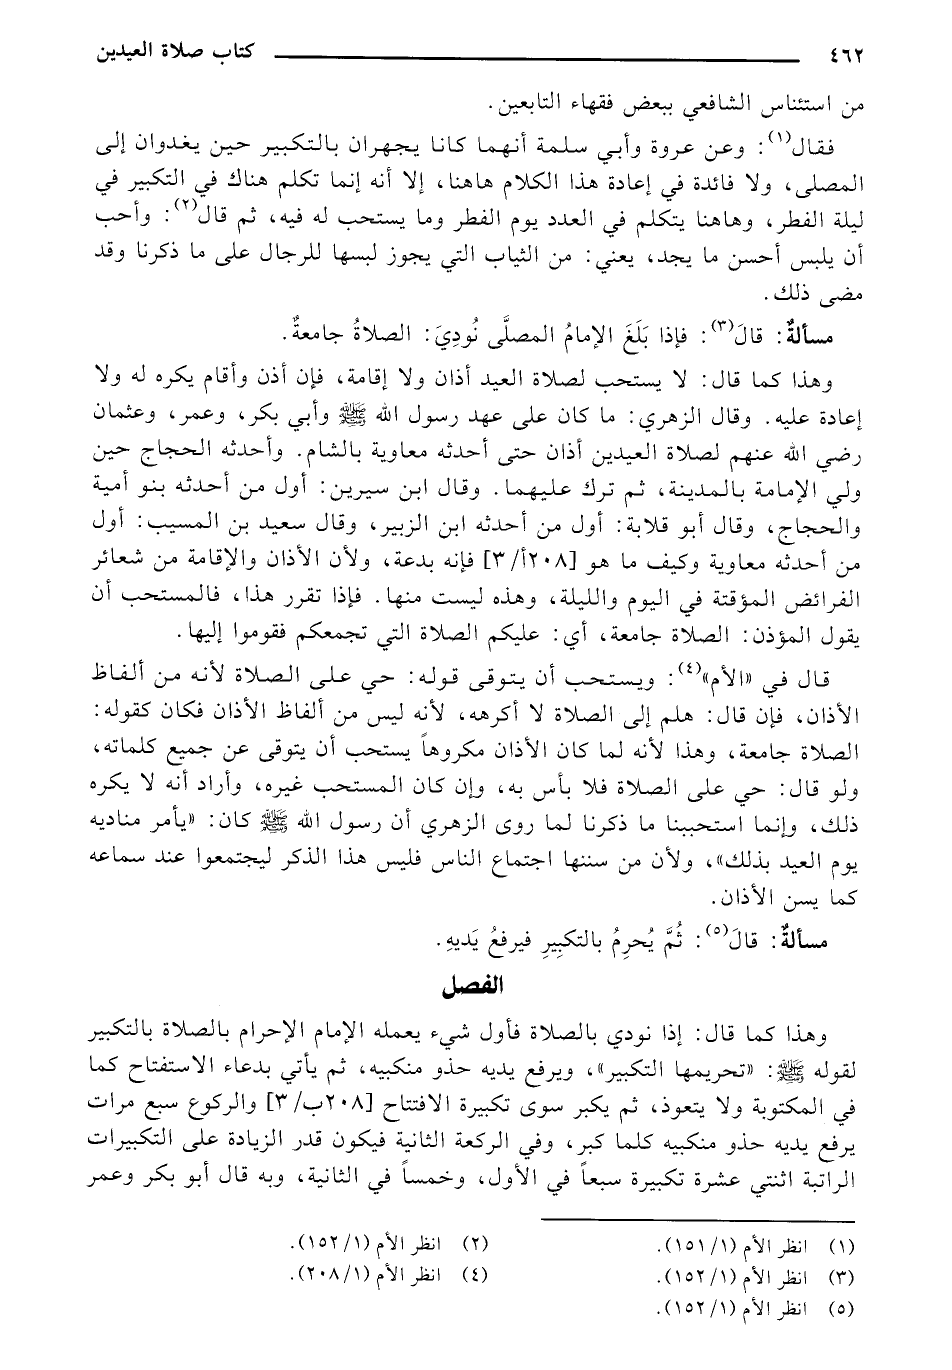 ٤٦٢ كتاب صلاة العيدين
من استئناس الشافعي ببعض فقهاء التابعين.
فقال(١): وعن عروة وأبي سلمة أنهما كانا يجهران بالتكبير حين يغدوان إلى
المصلى، ولا فائدة في إعادة هذا الكلام هاهنا، إلا أنه إنما تكلم هناك في التكبير في
ليلة الفطر، وهاهنا يتكلم في العدد يوم الفطر وما يستحب له فيه، ثم قال(٢): وأحب
أن يلبس أحسن ما يجد، يعني: من الثياب التي يجوز لبسها للرجال على ما ذكرنا وقد
مضى ذلك.
مسألةٌ: قالَ(٣): فإذا بَلَغَ الإمامُ المصلَّى نُودِيَ: الصلاةُ جامعةٌ.
وهذا كما قال: لا يستحب لصلاة العيد أذان ولا إقامة، فإن أذن وأقام يكره له ولا
إعادة عليه. وقال الزهري: ما كان على عهد رسول الله ﷺ وأبي بكر، وعمر، وعثمان
رضي الله عنهم لصلاة العيدين أذان حتى أحدثه معاوية بالشام. وأحدثه الحجاج حين
ولي الإمامة بالمدينة، ثم ترك عليهما. وقال ابن سيرين: أول من أحدثه بنو أمية
والحجاج، وقال أبو قلابة: أول من أحدثه ابن الزبير، وقال سعيد بن المسيب: أول
من أحدثه معاوية وكيف ما هو [٢٠٨أ/ ٣] فإنه بدعة، ولأن الأذان والإقامة من شعائر
الفرائض المؤقتة في اليوم والليلة، وهذه ليست منها. فإذا تقرر هذا، فالمستحب أن
يقول المؤذن: الصلاة جامعة، أي: عليكم الصلاة التي تجمعكم فقوموا إليها.
قال في «الأم»(٤): ويستحب أن يتوقى قوله: حي على الصلاة لأنه من ألفاظ
الأذان، فإن قال: هلم إلى الصلاة لا أكرهه، لأنه ليس من ألفاظ الأذان فكان كقوله:
الصلاة جامعة، وهذا لأنه لما كان الأذان مكروهاً يستحب أن يتوقى عن جميع كلماته،
ولو قال: حي على الصلاة فلا بأس به، وإن كان المستحب غيره، وأراد أنه لا يكره
ذلك، وإنما استحببنا ما ذكرنا لما روى الزهري أن رسول الله ﷺ كان: «يأمر مناديه
يوم العيد بذلك»، ولأن من سننها اجتماع الناس فليس هذا الذكر ليجتمعوا عند سماعه
كما يسن الأذان.
مسألةٌ: قالَ(٥): ثُمَّ يُحرِمُ بالتكبِيرِ فيرفعُ يَديهِ.
الفصل
وهذا كما قال: إذا نودي بالصلاة فأول شيء يعمله الإمام الإحرام بالصلاة بالتكبير
لقوله ﷺ: «تحريمها التكبير»، ويرفع يديه حذو منكبيه، ثم يأتي بدعاء الاستفتاح كما
في المكتوبة ولا يتعوذ، ثم يكبر سوى تكبيرة الافتتاح [٢٠٨ب/ ٣] والركوع سبع مرات
يرفع يديه حذو منكبيه كلما كبر، وفي الركعة الثانية فيكون قدر الزيادة على التكبيرات
الراتبة اثنتي عشرة تكبيرة سبعاً في الأول، وخمساً في الثانية، وبه قال أبو بكر وعمر
(١) انظر الأم (١/ ١٥١). (٢) انظر الأم (١/ ١٥٢).
(٣) انظر الأم (١/ ١٥٢). (٤) انظر الأم (١/ ٢٠٨).
(٥) انظر الأم (١/ ١٥٢).